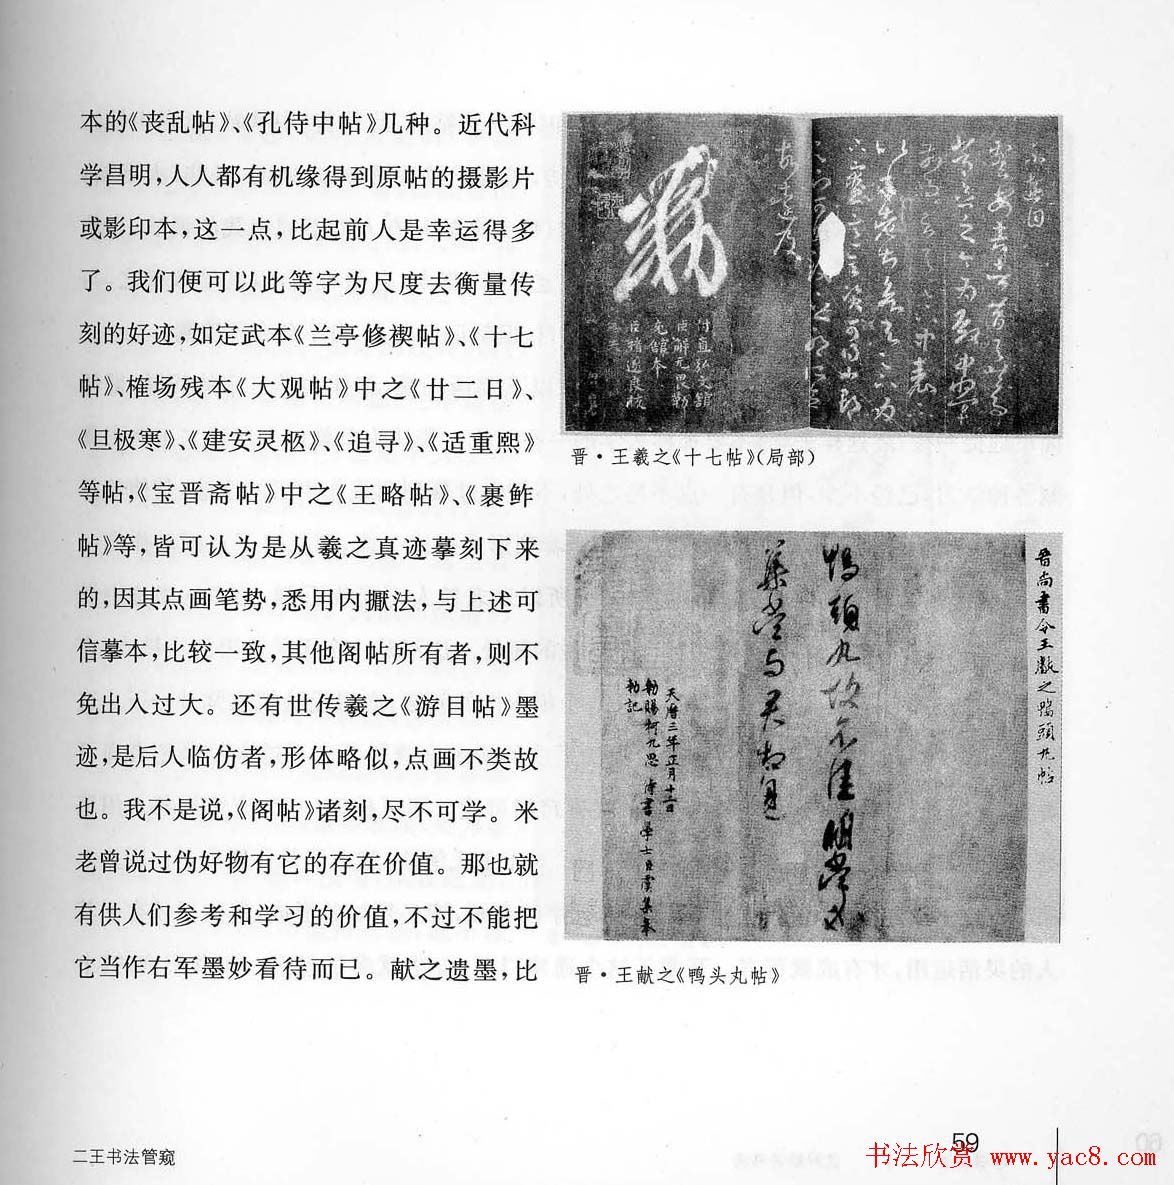 本的《丧乱帖》、《孔侍中帖》几种。近代科
学昌明，人人都有机缘得到原帖的摄影片
或影印本，这一点，比起前人是幸运得多
了。我们便可以此等字为尺度去衡量传
刻的好迹，如定武本《兰亭修禊帖》、《十七
帖》、榷场残本《大观帖》中之《廿二日》、
《旦极寒》、《建安灵柩》、《追寻》、《适重熙》
等帖，《宝晋斋帖》中之《王略帖》、《裹鲊
帖》等，皆可认为是从羲之真迹摹刻下来
的，因其点画笔势，悉用内擫法，与上述可
信摹本，比较一致，其他阁帖所有者，则不
免出入过大。还有世传羲之《游目帖》墨
迹，是后人临仿者，形体略似，点画不类故
也。我不是说，《阁帖》诸刻，尽不可学。米
老曾说过伪好物有它的存在价值。那也就
有供人们参考和学习的价值，不过不能把
它当作右军墨妙看待而已。献之遗墨，比
付直弘文館
臣解无畏勒
充館本
臣褚遂良校
晋·王羲之《十七帖》（局部）
晉尚書令王獻之鴨頭丸帖
鴨頭丸故不佳明當必
集當與君相見
天曆三年正月十二日
勑賜柯九思 侍書學士臣虞集奉
勑記
晋·王献之《鸭头丸帖》
二王书法管窥
59
书法欣赏 www.yac8.com